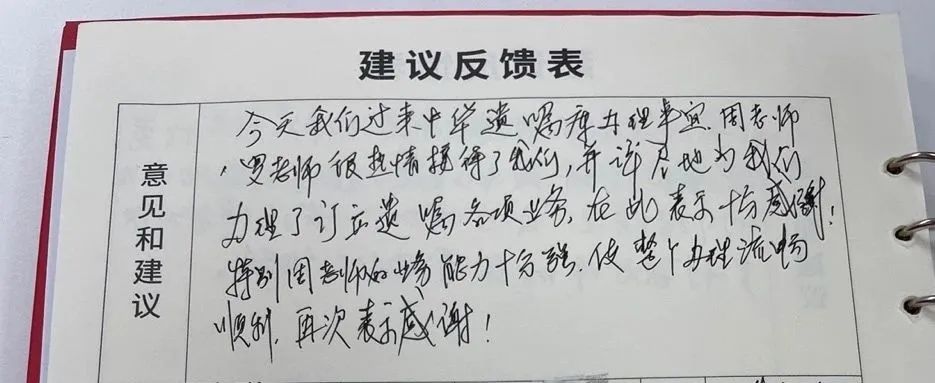 建议反馈表
意见和建议
今天我们过来中华遗嘱库办理事宜.周老师
,罗老师很热情接待了我们,并详尽地为我们
办理了订立遗嘱各项业务,在此表示十分感谢!
特别周老师的业务能力十分强.使整个办理流畅
顺利.再次表示感谢!